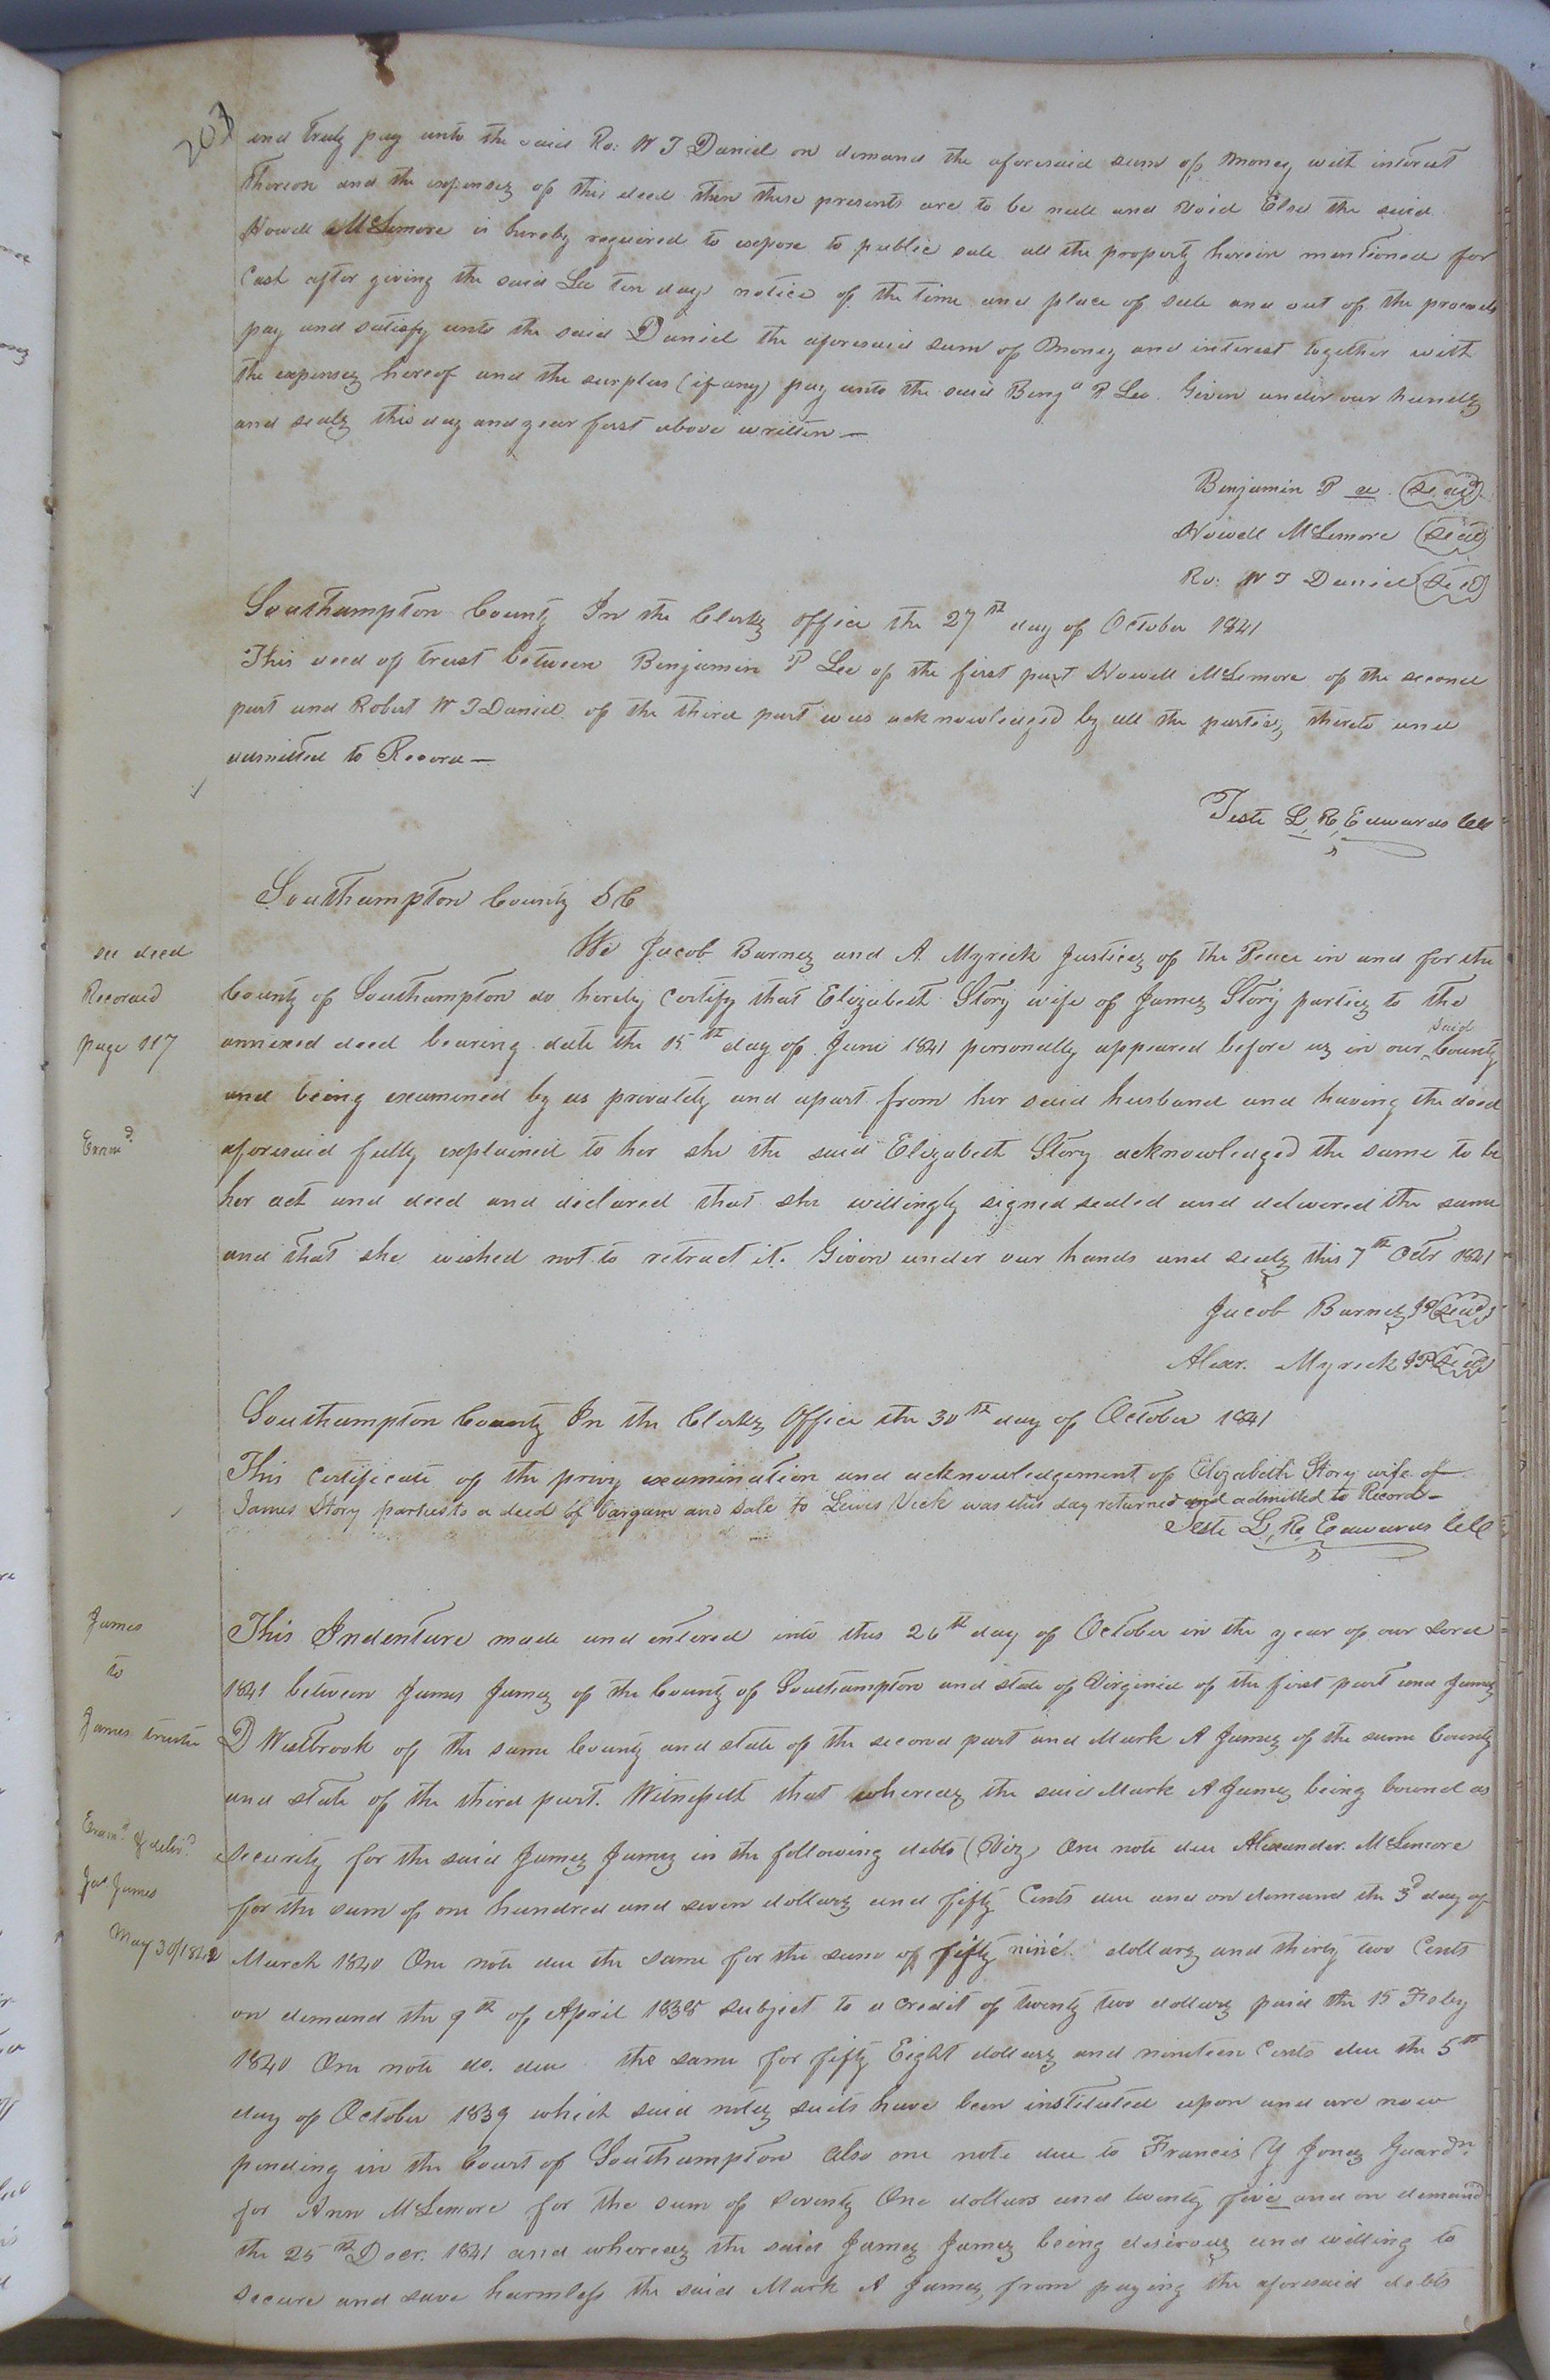 203
and truly pay unto the said Ro: W T Daniel on demand the aforesaid sum of money with interest
thereon and the expenses of this deed then these presents are to be null and void Else the said
Howell McLemore is hereby required to expose to public sale all the property herein mentioned for
Cash after giving the said Lee ten days notice of the time and place of sale and out of the proceeds
pay and satisfy unto the said Daniel the aforesaid sum of money and interest together with
the expenses hereof and the surplus (if any) pay unto the said Benja P. Lee. Given under our hands
and seals this day and year first above written—
Benjamin P Lee (Seal)
Howell McLemore (Seal)
Ro: W T Daniel (Seal)
Southampton County In the Clerks office the 27th day of October 1841
This deed of trust between Benjamin P Lee of the first part Howell McLemore of the second
part and Robert W T Daniel of the third part was acknowledged by all the parties thereto and
admitted to Record—
Teste L, R, Edwards CCC
Southampton County SC
see deed
Recorded
page 117
Examd.
We Jacob Barnes and A. Myrick Justices of the Peace in and for the
County of Southampton do hereby certify that Elizabeth Story wife of James Story parties to the
annexed deed bearing date the 15th day of June 1841 personally appeared before us in our said County
and being examined by us privately and apart from her said husband and having the deed
aforesaid fully explained to her she the said Elizabeth Story acknowledged the same to be
her act and deed and declared that she willingly signed sealed and delivered the same
and that she wished not to retract it. Given under our hands and seals this 7th Octr 1841
Jacob Barnes JP (Seal)
Alexr. Myrick JP (Seal)
Southampton County In the Clerks Office the 30th day of October 1841
This Certificate of the privy examination and acknowledgement of Elizabeth Story wife of
James Story parties to a deed of bargain and sale to Lewis Vick was this day returned and admitted to Record—
Teste L, R, Edwards CCC
James
to
James trustee
Examd. & delivd.
Jas James
May 30/1842
This Indenture made and entered into this 26th day of October in the year of our Lord
1841 between James James of the County of Southampton and state of Virginia of the first part and James
D Westbrook of the same County and state of the second part and Mark A James of the same County
and state of the third part. Witnesseth that whereas the said Mark A James being bound as
security for the said James James in the following debts (Viz) One note due Alexander McLemore
for the sum of one hundred and seven dollars and fifty Cents due and on demand the 3d day of
March 1840 One note due the same for the sum of fifty nine dollars and thirty two Cents
on demand the 9th of April 1838 subject to a credit of twenty two dollars paid the 15 Feby
1840 One note do. due the same for fifty Eight dollars and nineteen Cents due the 5th
day of October 1839 which said notes suits have been instituted upon and are now
pending in the Court of Southampton also one note due to Francis Y Jones Guardn.
for Ann McLemore for the sum of seventy One dollars and twenty five and on demand
the 25th Decr. 1841 and whereas the said James James being desirous and willing to
secure and save harmless the said Mark A James from paying the aforesaid debts